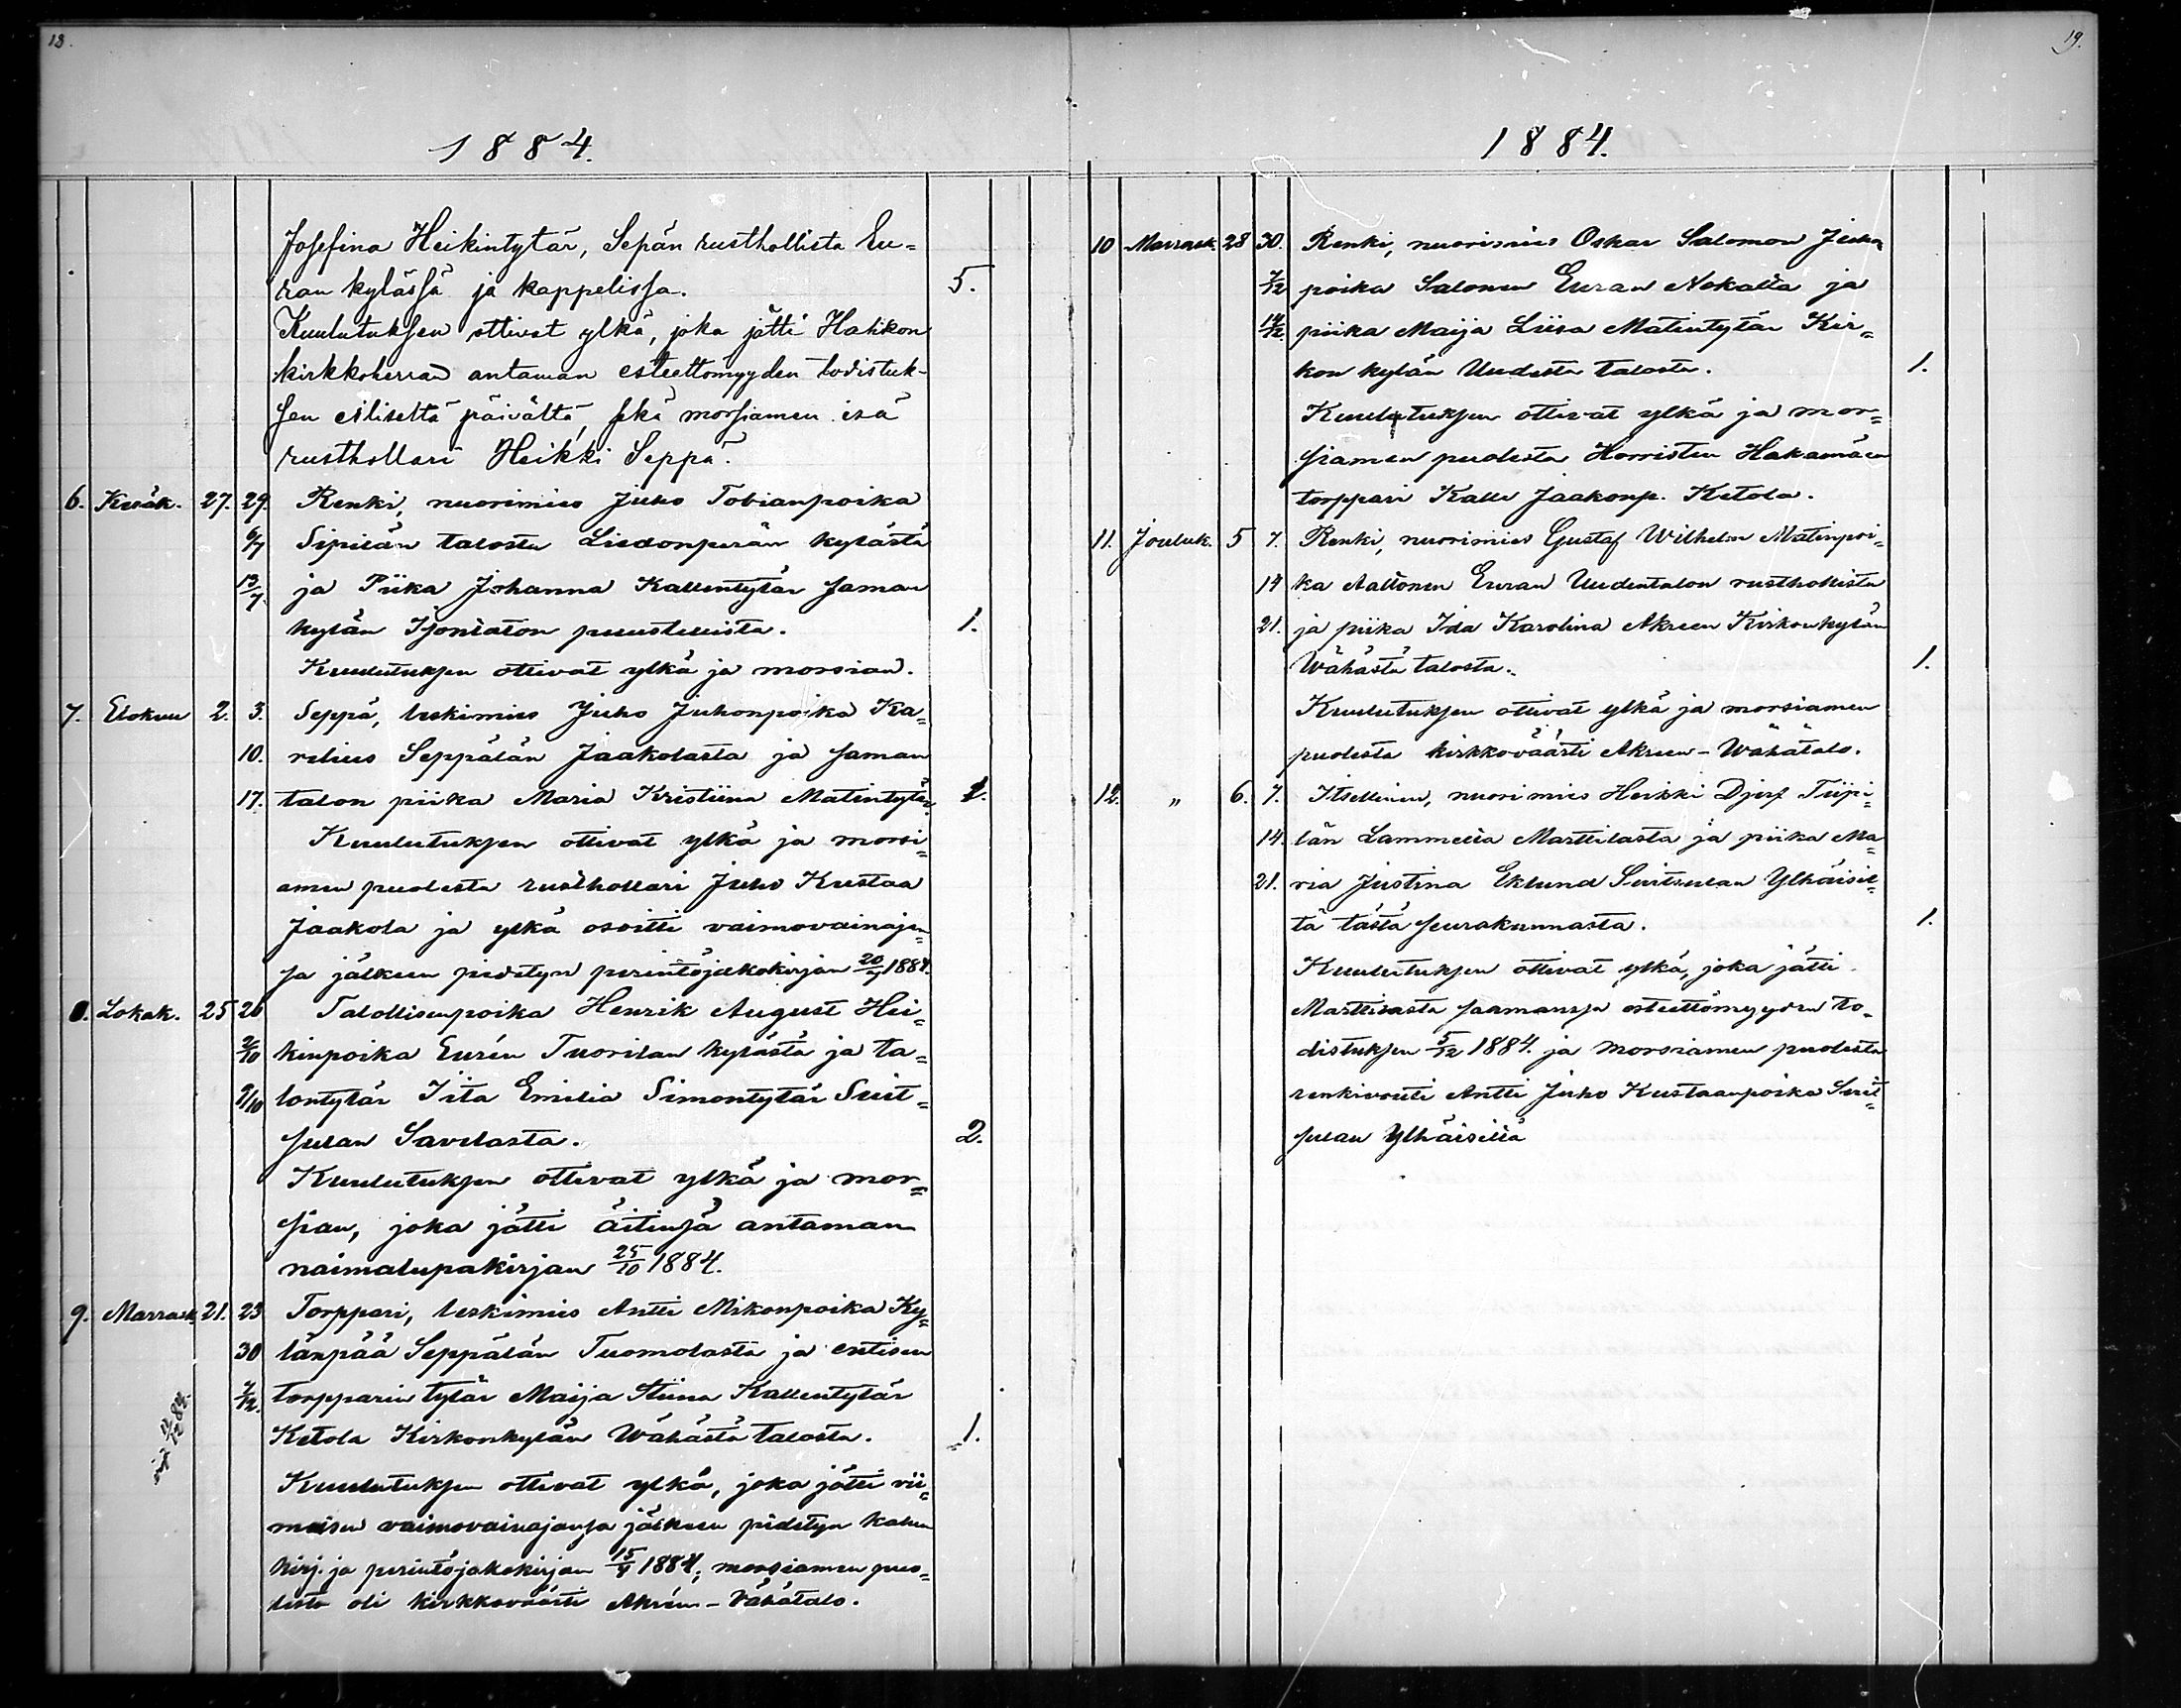 18.
1884.
Josefina Heikintytär, Sepän rusthollista Eu=
ran kylässä ja kappelissa. 5.
Kuulutuksen ottivat ylkä, joka jätti Halikon
kirkkoherran antaman esteettömyyden todistuk-
sen eiliseltä päivältä, sekä morsiamen isä
rusthollari Heikki Seppä.
6. Kesäk. 27. 29. Renki, nuorimies Juho Tobianpoika
6/7 Sipilän talosta Liedonperän kylästä
13/7 ja Piika Johanna Kallentytär saman
kylän Isontalon puustellista. 1.
Kuulutuksen ottivat ylkä ja morsian.
7. Elokuu 2. 3. Seppä, leskimies Juho Juhonpoika Ka=
10. relius Seppälän Jaakolasta ja saman
17. talon piika Maria Kristiina Matintytär. 2.
Kuulutuksen ottivat ylkä ja morsi=
amen puolesta rusthollari Juho Kustaa
Jaakola ja ylkä osoitti vaimovainajan=
sa jälkeen pidetyn perintöjakokirjan 1884.
8. Lokak. 25 26 Talollisenpoika Henrik August Hei=
2/10 kinpoika Eurén Tuorilan kylästä ja ta=
9/10 lontytär Iita Emilia Simontytär Suit=
sulan Savilasta. 2.
Kuulutuksen ottivat ylkä ja mor=
sian, joka jätti äitinsä antaman
naimalupakirjan 25/10 1884.
9. Marrask. 21. 23 Torppari, leskimies Antti Mikonpoika Ky=
30 länpää Seppälän Tuomolasta ja entisen
7/12. torpparin tytär Maija Stiina Kallentytär
Ketola Kirkonkylän Wähästä talosta. 1.
Kuulutuksen ottivat ylkä, joka jätti vii=
meisen vaimovainajansa jälkeen pidetyn kalun
kirj. ja perintöjakokirjan 15/4 1884, morsiamen puo=
lesta oli kirkkoväärti Akrén-Vähätalo.
19.
1884.
10 Marrask. 28 30. Renki, nuorimies Oskar Salomon Juhon
7/12 poika Salonen Euran Nokalta ja
14/12. piika Maija Liisa Matintytär Kir=
kon kylän Uudesta talosta. 1.
Kuulutuksen ottivat ylkä ja mor=
siamen puolesta Horristen Hakamäen
torppari Kalle Jaakonp. Ketola.
11. Jouluk. 5 7. Renki, nuorimies Gustaf Wilhelm Matinpoi=
14 ka Aaltonen Euran Uudentalon rusthollista
21. ja piika Ida Karolina Akreen Kirkonkylän
Wähästä talosta. 1.
Kuulutuksen ottivat ylkä ja morsiamen
puolesta kirkkoväärti Akreen-Wähätalo.
12. " 6. 7. Itsellinen, nuorimies Heikki Djerf Tiipi=
14. län Lammelta Marttilasta ja piika Ma
21. ria Justina Eklund Suitsulan Ylhäisil=
tä tästä seurakunnasta. 1.
Kuulutuksen ottivat ylkä, joka jätti
Marttilasta saamansa esteettömyyden to=
distuksen 5/12 1884. ja morsiamen puolesta
renkivouti Antti Juho Kustaanpoika Suit=
sulan Ylhäisiltä